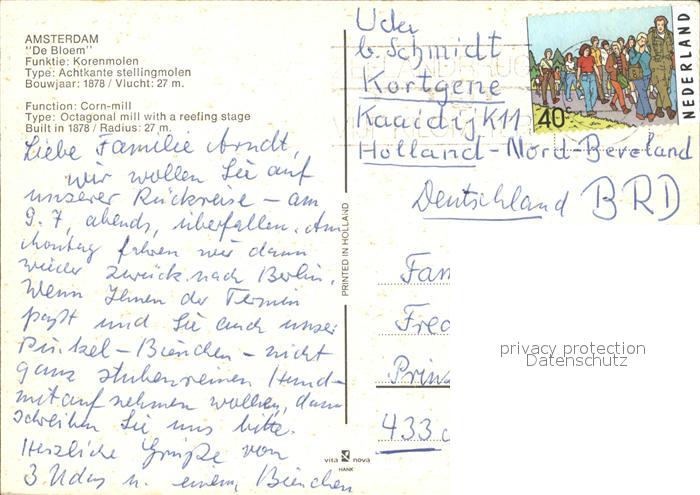 AMSTERDAM
"De Bloem"
Funktie: Korenmolen
Type: Achtkante stellingmolen
Bouwjaar: 1878 / Vlucht: 27 m.
Function: Corn-mill
Type: Octagonal mill with a reefing stage
Built in 1878 / Radius: 27 m.
Liebe Familie Arndt,
wir wollen Sie auf
unserer Rückreise – am
9.7, abends, überfallen. Am
Montag fahren wir dann
wieder zurück nach Berlin.
Wenn Ihnen der Termin
paßt und Sie auch unser
Pinkel – Bienchen – nicht
ganz stubenreinen Hund –
mit aufnehmen wollen, dann
schreiben Sie uns bitte.
Herzliche Grüße von
3 Udas u. einem Bienchen
PRINTED IN HOLLAND
vita nova
HANK
Uda
b. Schmidt
Kortgene
Kaaidijk K11
Holland - Nord-Beveland
NEDERLAND
40c
Deutschland BRD
Fam
Fred
Prinz
433
privacy protection
Datenschutz